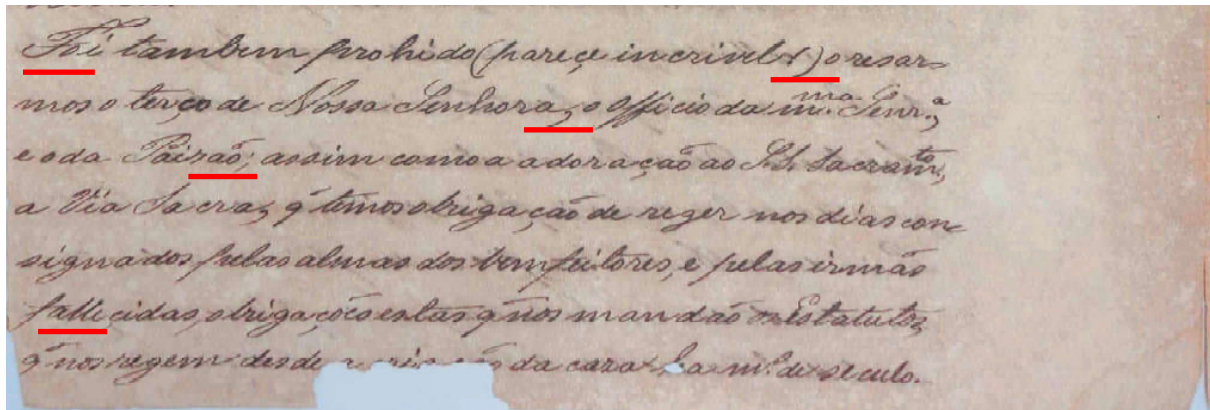 Foi tambem prohido (pareçe incrivel!) o resar-
mos o terço de Nossa Senhora, o Officio da m.ma Senr.a,
e o da Paixaõ; assim como a adoração ao SS. Sacram.to,
a Via Sacra, q̃ temos obrigação de reger nos dias con
signados pelas almas dos bemfeitores, e pelas irmãs
fallecidas, obrigações estas q̃ nos mandaõ os Estatutos,
q̃ nos regem desde a criação da caza a m.s de seculo.